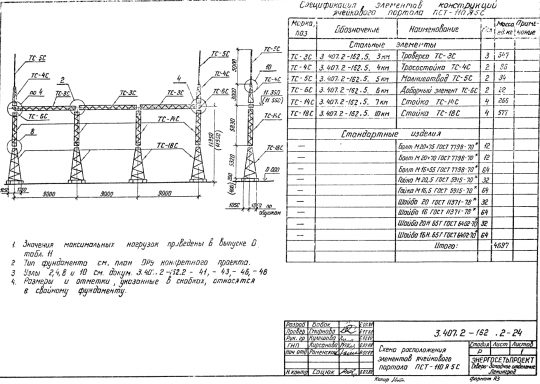 Спецификация элементов конструкций
ячейкового портала ПСТ-110 Я5С
Марка, поз. Обозначение Наименование Кол. Масса ед. кг Примечание
Стальные элементы
ТС-3С 3.407.2-162.5, 3 км Траверса ТС-3С 3 347
ТС-4С 3.407.2-162.5, 4 км Тросостойка ТС-4С 2
ТС-5С 3.407.2-162.5, 5 км Молниеотвод ТС-5С 2 34
ТС-6С 3.407.2-162.5, 6 км Доборный элемент ТС-6С 2 22
ТС-14С 3.407.2-162.5, 7 км Стойка ТС-14С 4 266
ТС-18С 3.407.2-162.5, 10 км Стойка ТС-18С 4 577
Стандартные изделия
— Болт М20×75 ГОСТ 7798-70* 12
— Болт М20×70 ГОСТ 7798-70*
— Болт М16×55 ГОСТ 7798-70* 64
— Гайка М20,5 ГОСТ 5915-70* 32
— Гайка М16,5 ГОСТ 5915-70* 64
— Шайба 20 ГОСТ 11371-78* 32
— Шайба 16 ГОСТ 11371-78* 64
— Шайба 20Н 65Г ГОСТ 6402-70* 32
— Шайба 16Н 65Г ГОСТ 6402-70* 64
Итого: 4697
ТС-5С
ТС-4С
по 4
2
ТС-3С
ТС-3С
ТС-3С
4
ТС-5С
ТС-4С
ТС-6С
8
ТС-14С
ТС-18С
9000
9000
9000
ТС-5С
10
ТС-4С
ТС-6С
ТС-14С
ТС-18С
1. Значения максимальных нагрузок приведены в выпуске 0
табл. 11
2 Тип фундамента см. план ОРУ конкретного проекта.
3. Узлы 2,4,8 и 10 см. докум. 3.407.2-162.2 - 41, - 43, - 46, - 48
4. Размеры и отметки, указанные в скобках, относятся
к свайному фундаменту.
3.407.2-162.2-24
Разраб Бабак
Провер Смирнова
Рук. гр Кулешова
ГНП Кирсанова
Нач. отд Роменский
Н.контр Сацюк
Схема расположения
элементов ячейкового
портала ПСТ-110 Я5С
Стадия Лист Листов
Р 1
ЭНЕРГОСЕТЬПРОЕКТ
Северо-Западное отделение
Ленинград
Формат А3